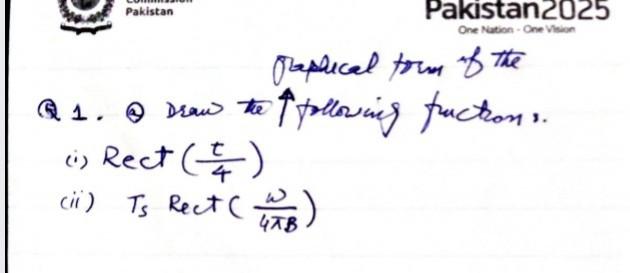 Pakistan
Pakistan2025
One Nation - One Vision
graphical form of the
Q 1. (a) Draw the ↑ following fuctions.
(i) Rect (t/4)
(ii) Ts Rect (ω/4πB)